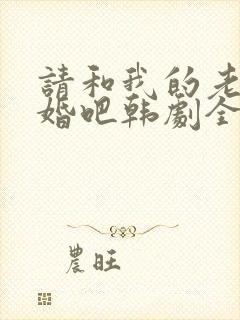 請和我的老
婚吧韩劇全
農旺